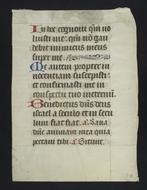 In hoc cognovi qm vo
luisti me: qm no gau
debit inimicus meus
super me.
Me autem propter in
nocentiam suscepisti: et
confirmasti me in con
spectu tuo in eternum.
Benedictus dns deus
israel a seculo et in secu
lum fiat fiat.
dne animam mea quia
peccavi tibi. Sitivit.